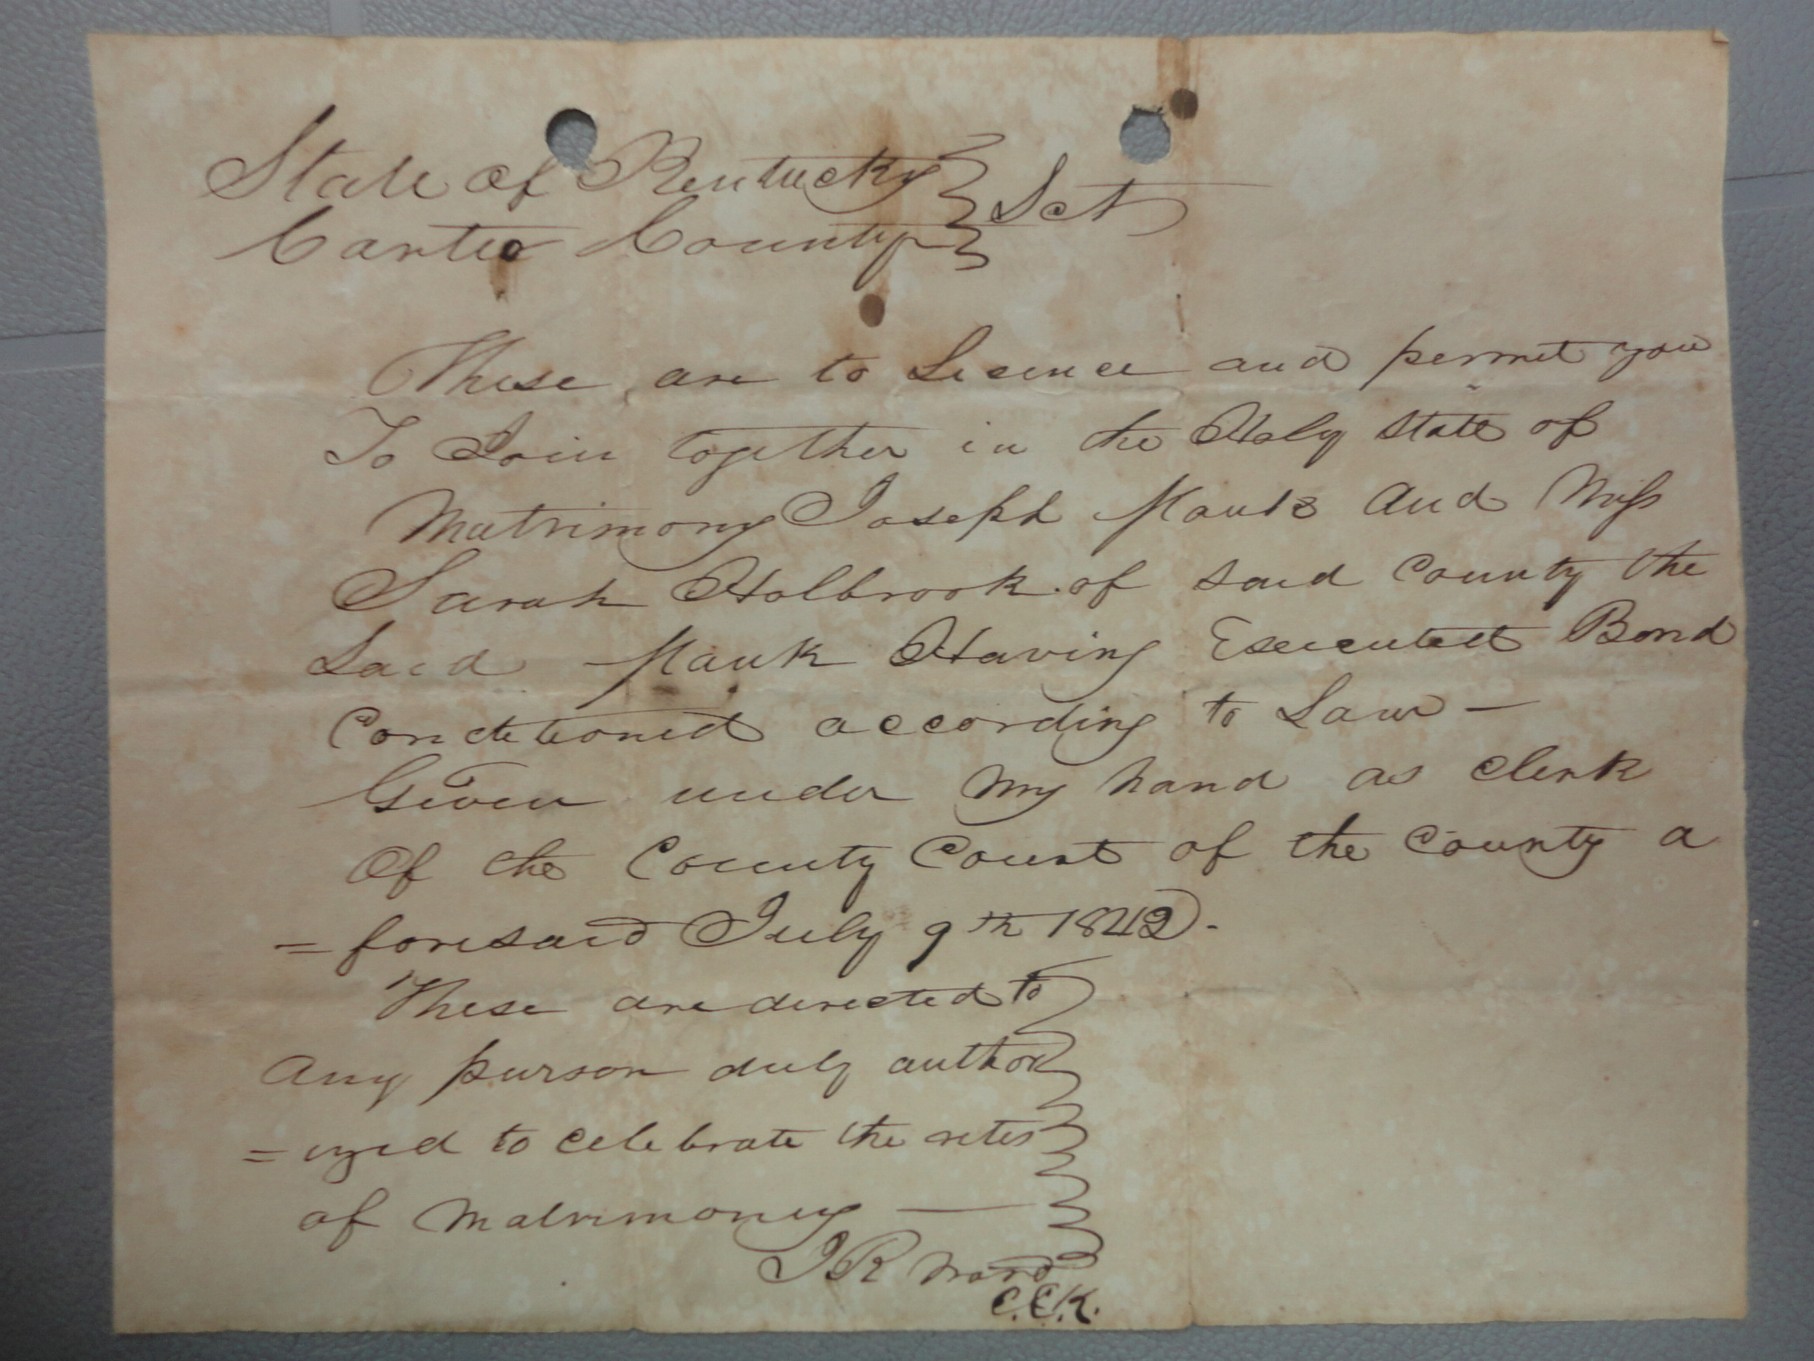 State of Kentucky } Sct
Carter County }
These are to Licence and permit you
To Join together in the Holy State of
Matrimony Joseph Mauk and Miss
Sarah Holbrook of said County the
Said Mauk Having Executed Bond
Conditioned according to Law —
Given under My hand as Clerk
Of the County Court of the County a
= foresaid July 9th 1842.
These are directed to
Any purson duly author
= ized to celebrate the rites
of Matrimony —
J R Ward
C.C.K.